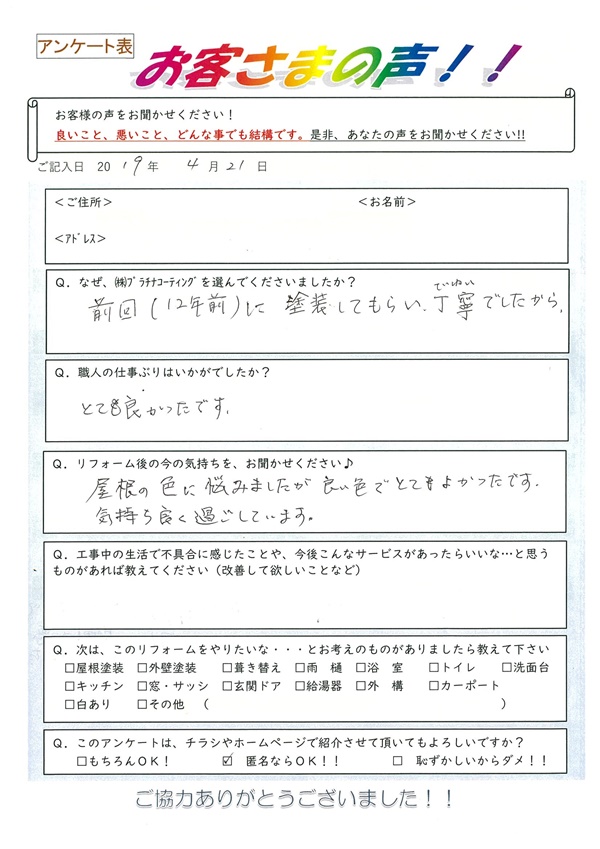 アンケート表
お客さまの声！！
お客様の声をお聞かせください！
良いこと、悪いこと、どんな事でも結構です。是非、あなたの声をお聞かせください!!
ご記入日 2019年 4月21日
＜ご住所＞ ＜お名前＞
＜ｱﾄﾞﾚｽ＞
Q．なぜ、㈱ﾌﾟﾗﾁﾅｺｰﾃｨﾝｸﾞを選んでくださいましたか？
ていねい
前回(12年前)に塗装してもらい、丁寧でしたから。
Q．職人の仕事ぶりはいかがでしたか？
とても良かったです。
Q．リフォーム後の今の気持ちを、お聞かせください♪
屋根の色に悩みましたが良い色でとてもよかったです。
気持ち良く過ごしています。
Q．工事中の生活で不具合に感じたことや、今後こんなサービスがあったらいいな…と思う
ものがあれば教えてください（改善して欲しいことなど）
Q．次は、このリフォームをやりたいな・・・とお考えのものがありましたら教えて下さい
□屋根塗装 □外壁塗装 □葺き替え □雨 樋 □浴 室 □トイレ □洗面台
□キッチン □窓・サッシ □玄関ドア □給湯器 □外 構 □カーポート
□白あり □その他 （ ）
Q．このアンケートは、チラシやホームページで紹介させて頂いてもよろしいですか？
□もちろんOK！ ☑ 匿名ならOK！！ □ 恥ずかしいからダメ！！
ご協力ありがとうございました！！